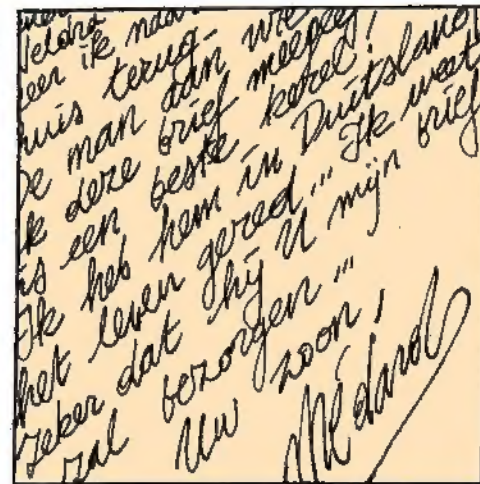 Weldra
keer ik naar
huis terug.
De man aan wie
ik deze brief meegeef
is een beste kerel!
Ik heb hem in Duitsland
het leven gered... Ik weet
zeker dat hij U mijn brief
zal bezorgen...
Uw zoon,
Médard